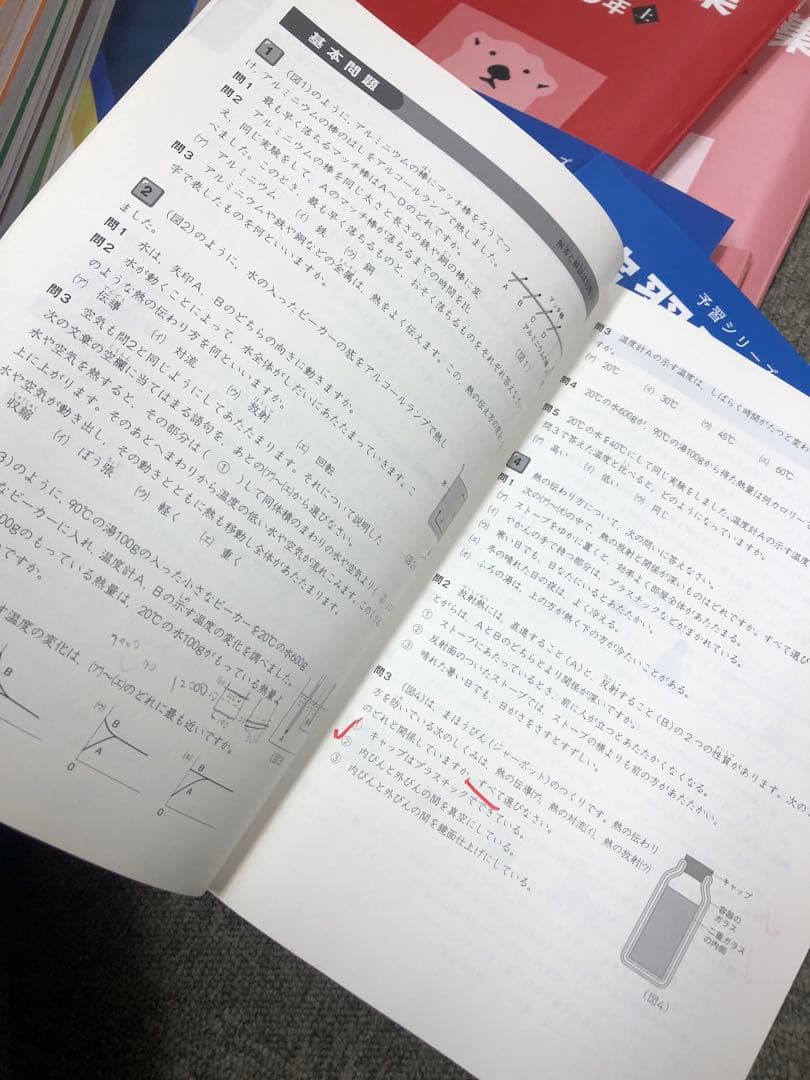 基本問題
1 (図1)のように、アルミニウムの棒にマッチ棒をろうでつ
け、アルミニウムの棒のはしをアルコールランプで熱しました。
問1 最も早く落ちるマッチ棒はA〜Dのどれですか。
問2 アルミニウムの棒を同じ太さと長さの鉄や銅の棒に変
え、同じ実験をして、Aのマッチ棒が落ちるまでの時間を比
べました。このとき、最も早く落ちるものと、おそく落ちるものをそれぞれ答えな
(ア) アルミニウム (イ) 鉄 (ウ) 銅
問3 アルミニウムや鉄や銅などの金属は、熱をよく伝えます。この、熱の伝え方を
字で表したものを何といいますか。
2 (図2)のように、水の入ったビーカーの底をアルコールランプで熱し
ました。
問1 水は、矢印A、Bのどちらの向きに動きますか。
問2 水が動くことによって、水全体がしだいにあたたまっていきます。こ
のような熱の伝わり方を何といいますか。
(ア) 伝導 (イ) 対流 (ウ) 放射 (エ) 回転
問3 空気も問2と同じようにしてあたたまります。それについて説明した
次の文章の空欄に当てはまる語句を、あとの(ア)〜(エ)から選びなさい。
水や空気を熱すると、その部分は( ① )して同体積のまわりの水や空気より( ② )
上に上がります。そのあとへまわりから温度の低い水や空気が流れこみます。この
水や空気が動き出し、その動きとともに熱も移動し全体があたたまります。
収縮 (イ) ぼう張 (ウ) 軽く (エ) 重く
3)のように、90℃の湯100gの入った小さなビーカーを20℃の水600g
なビーカーに入れ、温度計A、Bの示す温度の変化を調べました。
00gのもっている熱量は、20℃の水100gがもっている熱量よ
いですか。
9000
12000
す温度の変化は、(ア)〜(エ)のどれに最も近いですか。
B
(ウ)
B
A
0
(エ)
B
A
0
(図1)
年上
予習シリーズ
問3 温度計Aの示す温度は、しばらく時間がたつと変わ
すか。
(ア) 20℃ (イ) 30℃ (ウ) 45℃ (エ) 60℃
問4 20℃の水600gが、90℃の湯100gから得た熱量は何カロリー
問5 20℃の水を40℃にして同じ実験をしました。温度計Aの示す温度
問3で答えた温度と比べると、どのようになっていますか。
(ア) 高い (イ) 低い (ウ) 同じ
4 熱の伝わり方について、次の問いに答えなさい。
問1 次の(ア)〜(オ)の中で、熱の放射と関係が深いものはどれですか。すべて選び
(ア) ストーブをゆかに置くと、効率よく部屋全体があたたまる。
(イ) やかんの手で持つ部分は、プラスチックなどがまかれている。
(ウ) 寒い日でも、日なたにいるとあたたかい。
(エ) 冬の晴れた日の夜は、よく冷える。
(オ) ふろの湯は、上の方が熱く下の方が冷たいことがある。
問2 放射熱には、直進すること(A)と、反射すること(B)の2つの性質があります。次の
とがらは、AとBのどちらとより関係が深いですか。
① ストーブにあたっているとき、前に人が立つとあたたかくなくなる。
② 反射面のついたストーブでは、ストーブの横よりも前の方があたたかい。
③ 晴れた暑い日でも、日がさをさすとすずしい。
問3 (図4)は、まほうびん(ジャーポット)のつくりです。熱の伝わり
方を防いでいる次のしくみは、熱の伝導(ア)、熱の対流(イ)、熱の放射(ウ)
のどれと関係していますか。すべて選びなさい。
① キャップはプラスチックでできている。
② 内びんと外びんの間を真空にしている。
③ 内びんと外びんの間を鏡面仕上げにしている。
キャップ
容器の
ガラス
二重ガラス
の内側
(図4)